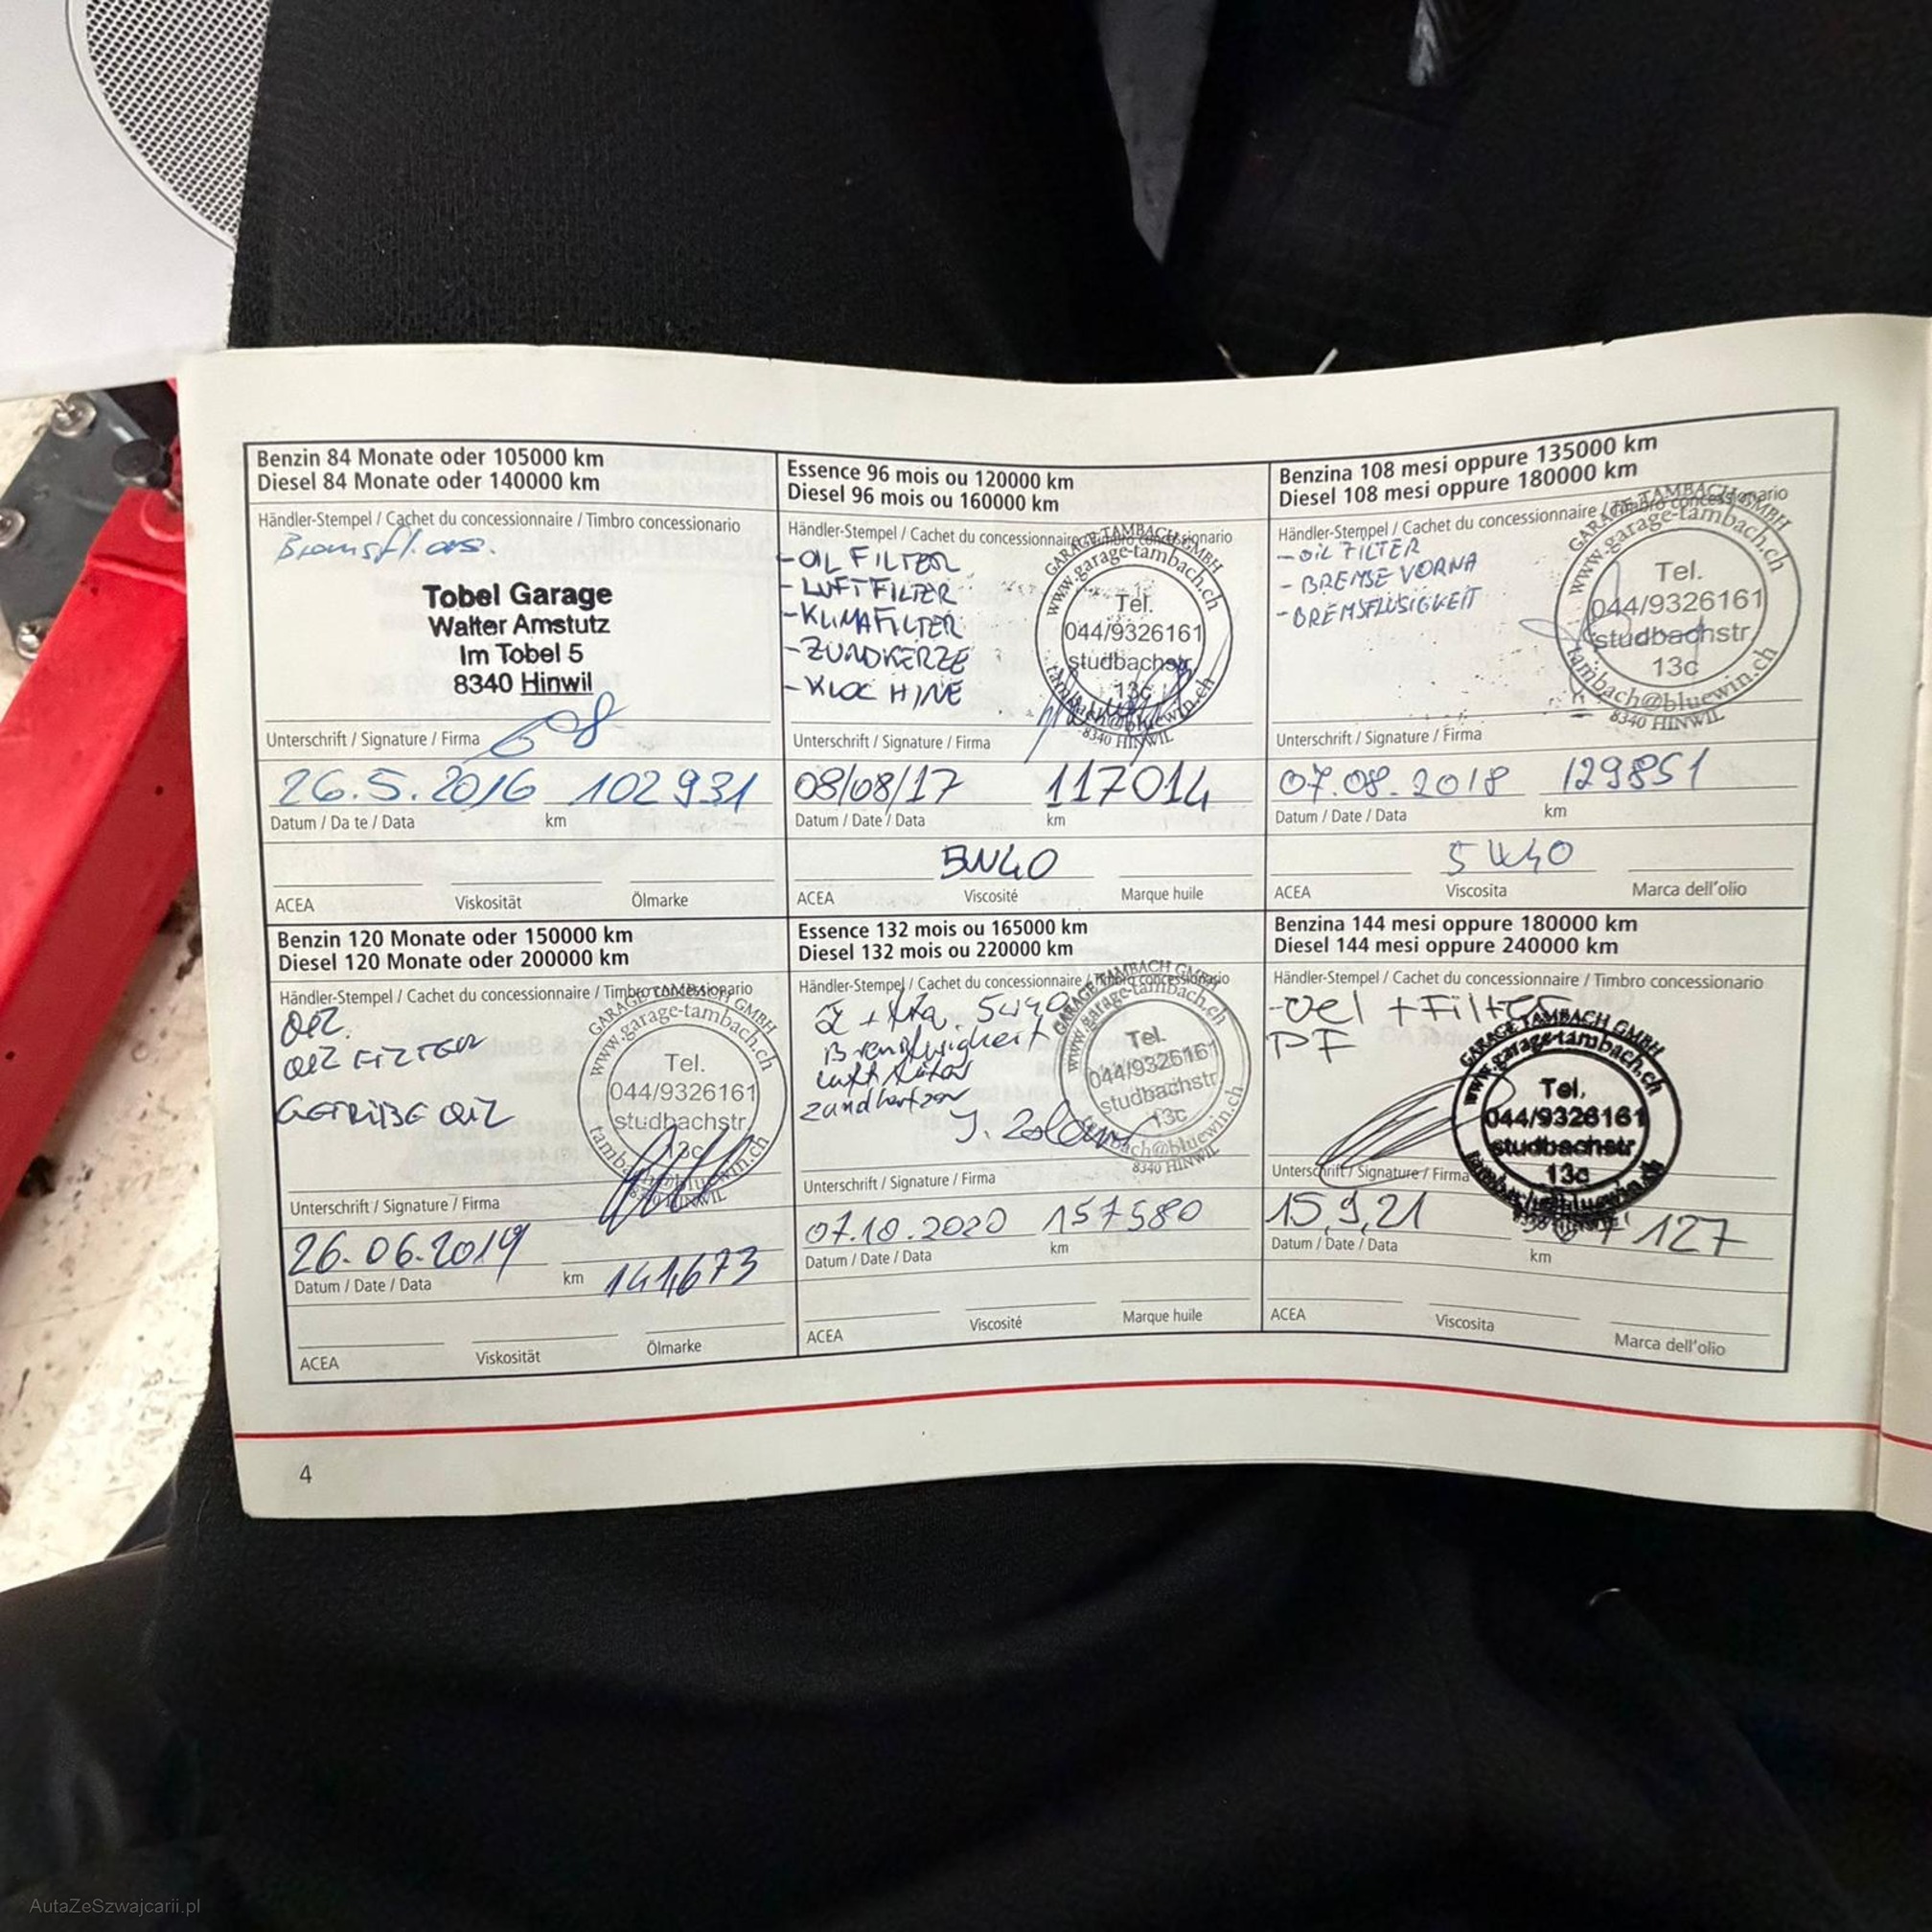 Benzin 84 Monate oder 105000 km
Diesel 84 Monate oder 140000 km
Händler-Stempel / Cachet du concessionnaire / Timbro concessionario
Tobel Garage
Walter Amstutz
Im Tobel 5
8340 Hinwil
Unterschrift / Signature / Firma
26.5.2016 102931
Datum / Da te / Data km
ACEA Viskosität Ölmarke
Essence 96 mois ou 120000 km
Diesel 96 mois ou 160000 km
Händler-Stempel / Cachet du concessionnaire / Timbro concessionario
-OIL FILTER
-LUFTFILTER
-KLIMAFILTER
-ZUNDKERZE
GARAGE TAMBACH GMBH
www.garage-tambach.ch
Tel.
044/9326161
studbachstr.
13c
tambach@bluewin.ch
8340 HINWIL
Unterschrift / Signature / Firma
08/08/17 117014
Datum / Date / Data km
5W40
ACEA Viscosité Marque huile
Benzina 108 mesi oppure 135000 km
Diesel 108 mesi oppure 180000 km
Händler-Stempel / Cachet du concessionnaire / Timbro concessionario
-OIL FILTER
-BREMSE VORNA
-BREMSFLÜSIGKEIT
GARAGE TAMBACH GMBH
www.garage-tambach.ch
Tel.
044/9326161
studbachstr.
13c
tambach@bluewin.ch
8340 HINWIL
Unterschrift / Signature / Firma
07.08.2018 129851
Datum / Date / Data km
5W40
ACEA Viscosita Marca dell'olio
Benzin 120 Monate oder 150000 km
Diesel 120 Monate oder 200000 km
Händler-Stempel / Cachet du concessionnaire / Timbro concessionario
OEL
OEL FILTER
GETRIBE OEL
GARAGE TAMBACH GMBH
www.garage-tambach.ch
Tel.
044/9326161
studbachstr.
13c
tambach@bluewin.ch
8340 HINWIL
Unterschrift / Signature / Firma
26.06.2019 141673
Datum / Date / Data km
ACEA Viskosität Ölmarke
Essence 132 mois ou 165000 km
Diesel 132 mois ou 220000 km
Händler-Stempel / Cachet du concessionnaire / Timbro concessionario
5W40
GARAGE TAMBACH GMBH
www.garage-tambach.ch
Tel.
044/9326161
studbachstr.
13c
tambach@bluewin.ch
8340 HINWIL
Unterschrift / Signature / Firma
07.10.2020 157580
Datum / Date / Data km
ACEA Viscosité Marque huile
Benzina 144 mesi oppure 180000 km
Diesel 144 mesi oppure 240000 km
Händler-Stempel / Cachet du concessionnaire / Timbro concessionario
-Oel + Filter
PF
GARAGE TAMBACH GMBH
www.garage-tambach.ch
Tel.
044/9326161
studbachstr
13c
Unterschrift / Signature / Firma
15,9,21 127
Datum / Date / Data km
ACEA Viscosita Marca dell'olio
4
AutaZeSzwajcarii.pl